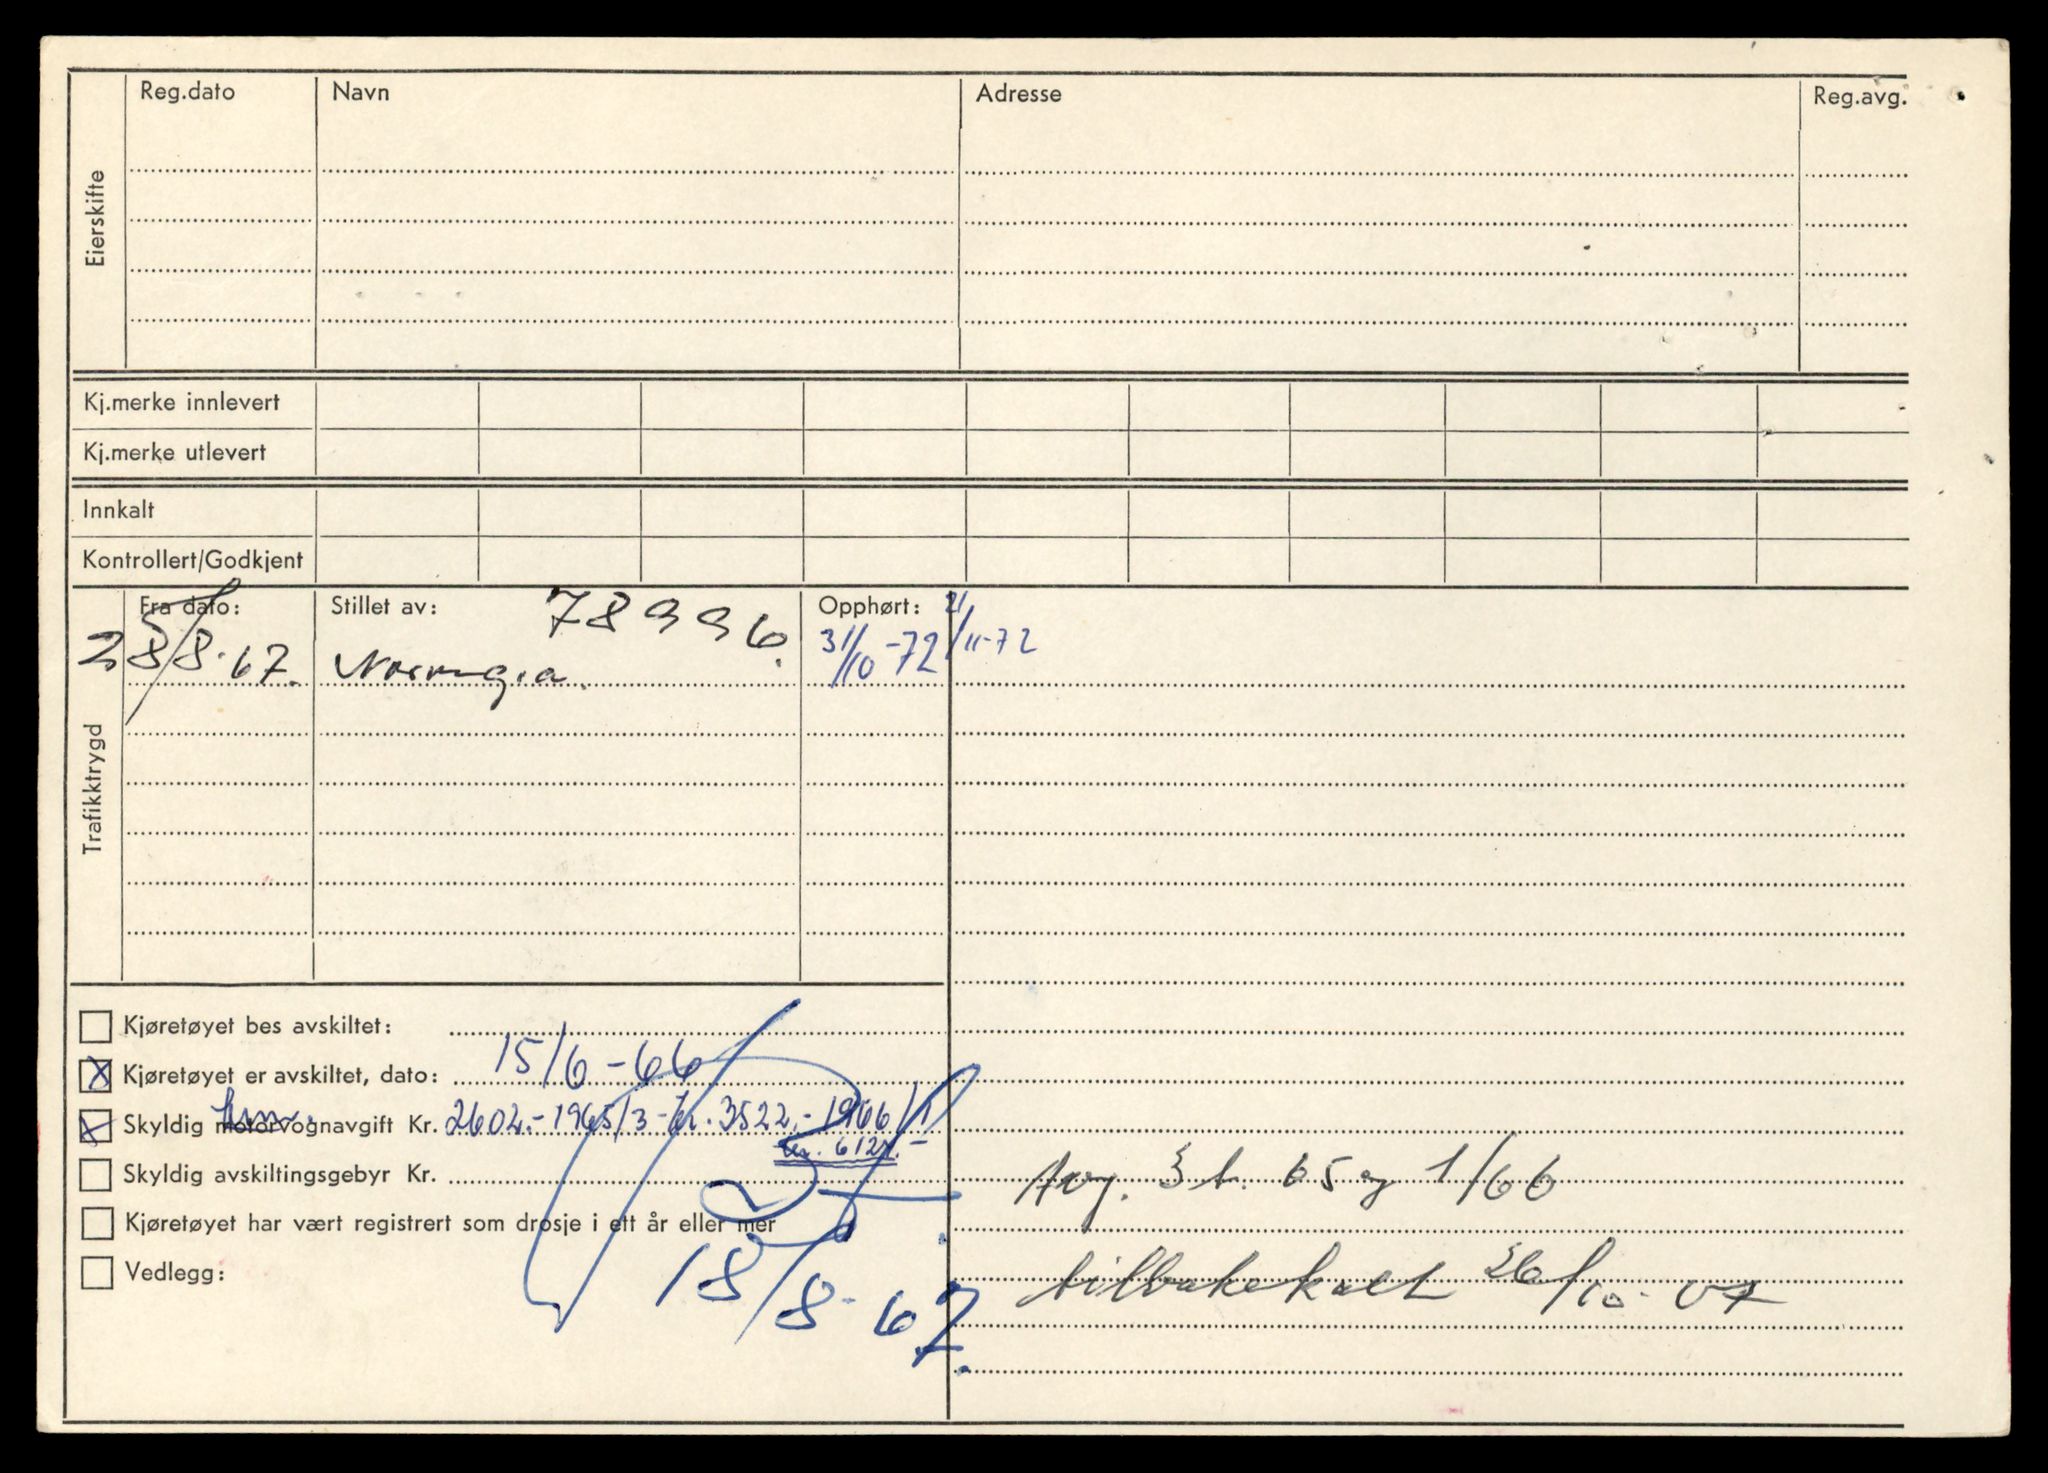 Reg.dato Navn Adresse Reg.avg.
Eierskifte
Kj.merke innlevert
Kj.merke utlevert
Innkalt
Kontrollert/Godkjent
Trafikktrygd
Fra dato: Stillet av: 78996. Opphørt: 21/11-72
28/8-67. Norwegia. 31/10-72
Kjøretøyet bes avskiltet:
X Kjøretøyet er avskiltet, dato: 15/6-66
Skyldig motorvognavgift Kr. 2602.- 1965/3 - kr. 3522.- 1966/1
kr. 6124.-
Skyldig avskiltingsgebyr Kr.
Kjøretøyet har vært registrert som drosje i ett år eller mer
Vedlegg:
18/8-67.
Avg. 3 t. 65 og 1/66
tilbakekalt 26/10-67